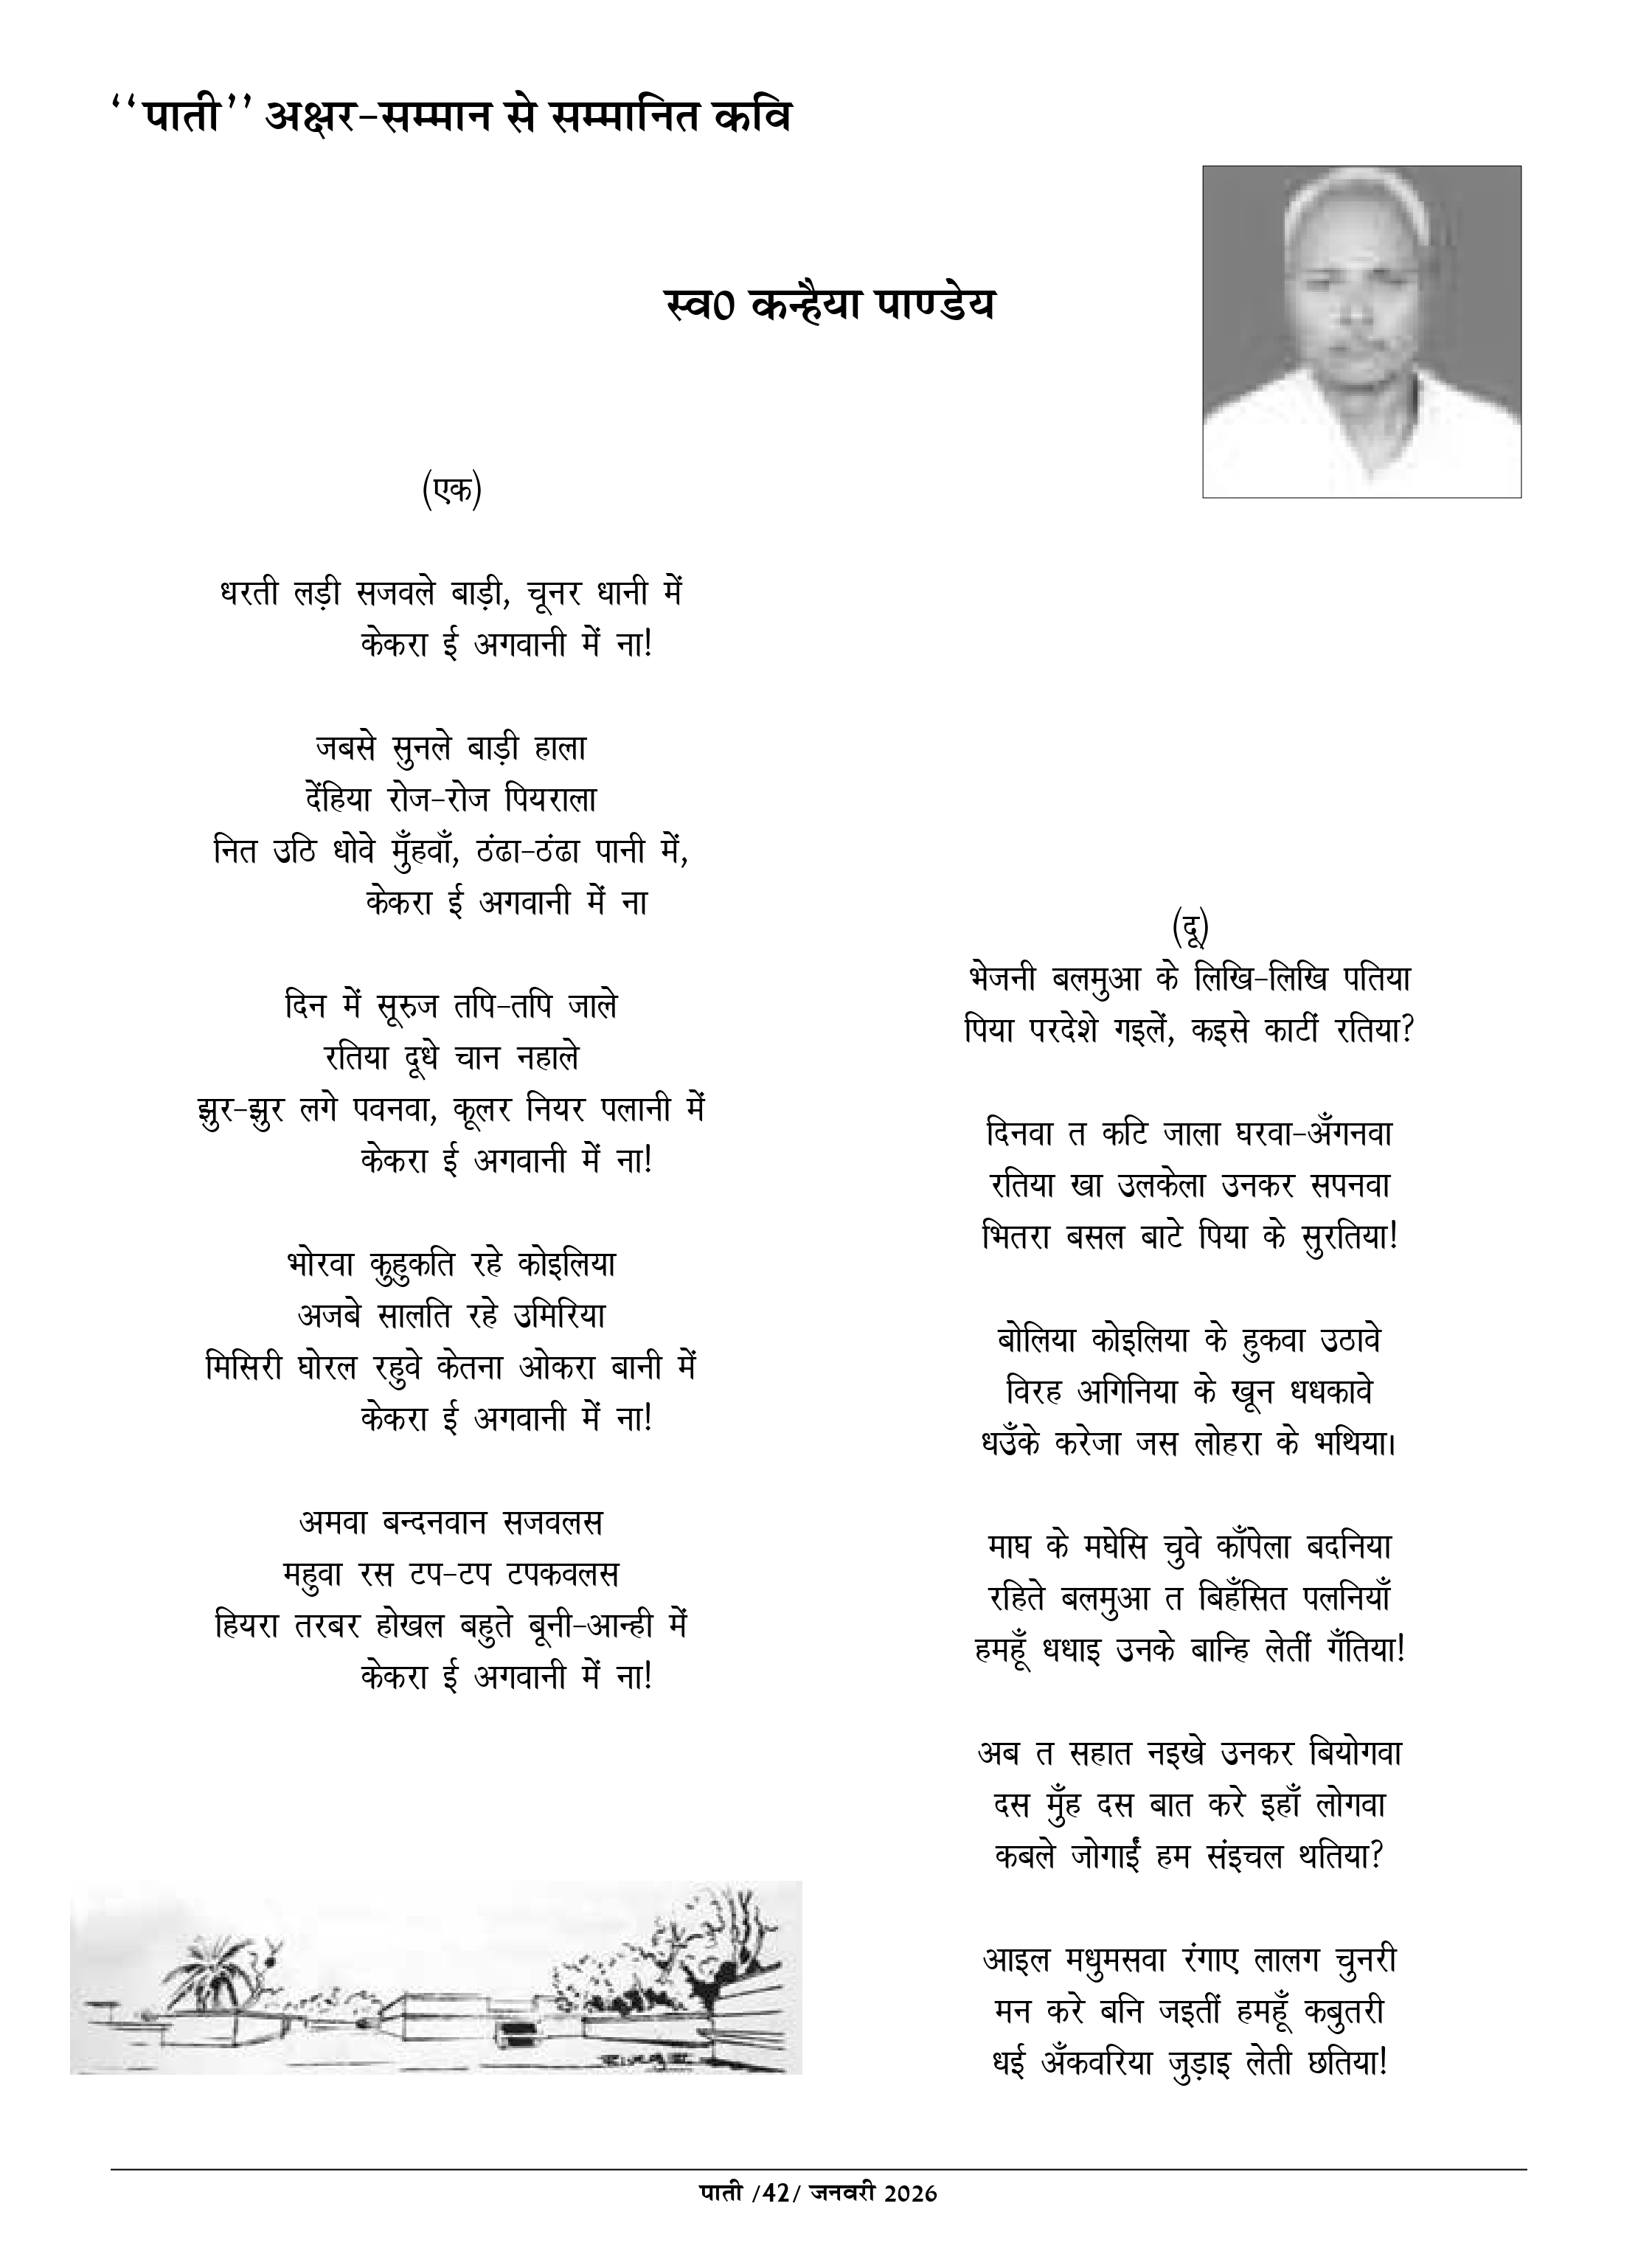 ‘‘पाती’’ अक्षर-सम्मान से सम्मानित कवि
स्व0 कन्हैया पाण्डेय
(एक)
धरती लड़ी सजवले बाड़ी, चूनर धानी में
केकरा ई अगवानी में ना!
जबसे सुनले बाड़ी हाला
देंहिया रोज-रोज पियराला
नित उठि धोवे मुँहवाँ, ठंढा-ठंढा पानी में,
केकरा ई अगवानी में ना
दिन में सूरुज तपि-तपि जाले
रतिया दूधे चान नहाले
झुर-झुर लगे पवनवा, कूलर नियर पलानी में
केकरा ई अगवानी में ना!
भोरवा कुहुकति रहे कोइलिया
अजबे सालति रहे उमिरिया
मिसिरी घोरल रहुवे केतना ओकरा बानी में
केकरा ई अगवानी में ना!
अमवा बन्दनवान सजवलस
महुवा रस टप-टप टपकवलस
हियरा तरबर होखल बहुते बूनी-आन्ही में
केकरा ई अगवानी में ना!
(दू)
भेजनी बलमुआ के लिखि-लिखि पतिया
पिया परदेशे गइलें, कइसे काटीं रतिया?
दिनवा त कटि जाला घरवा-अँगनवा
रतिया खा उलकेला उनकर सपनवा
भितरा बसल बाटे पिया के सुरतिया!
बोलिया कोइलिया के हुकवा उठावे
विरह अगिनिया के खून धधकावे
धउँके करेजा जस लोहरा के भथिया।
माघ के मघेसि चुवे काँपेला बदनिया
रहिते बलमुआ त बिहँसित पलनियाँ
हमहूँ धधाइ उनके बान्हि लेतीं गँतिया!
अब त सहात नइखे उनकर बियोगवा
दस मुँह दस बात करे इहाँ लोगवा
कबले जोगाईं हम संइचल थतिया?
आइल मधुमसवा रंगाए लालग चुनरी
मन करे बनि जइतीं हमहूँ कबुतरी
धई अँकवरिया जुड़ाइ लेती छतिया!
पाती /42/ जनवरी 2026